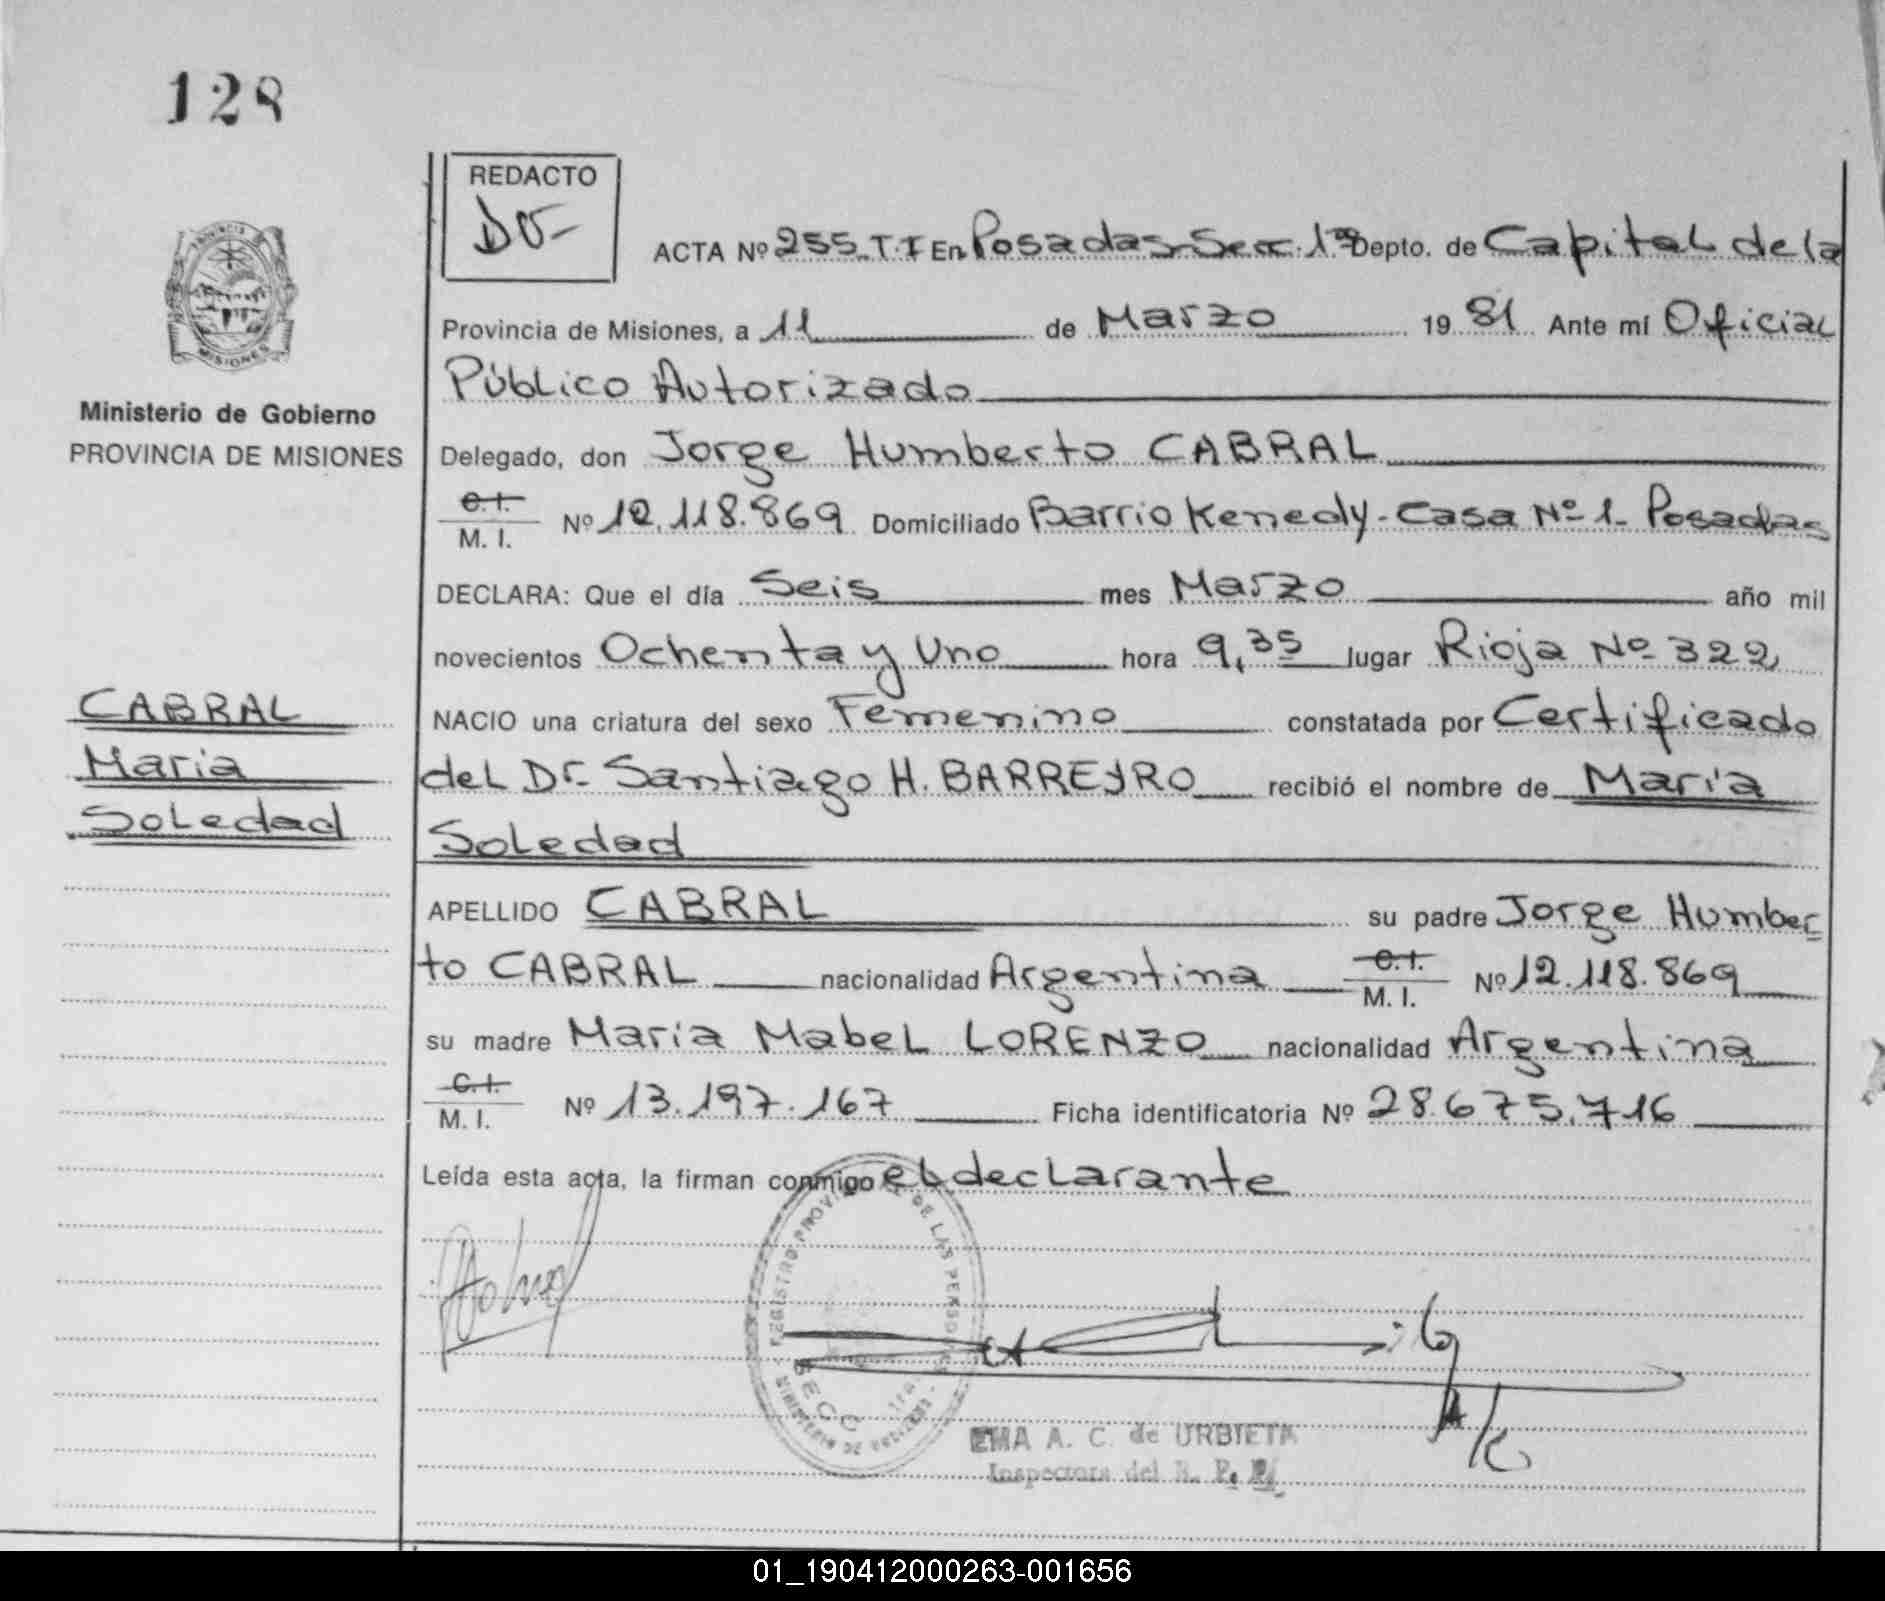 128
REDACTO
DO-
ACTA Nº 255.T.I En Posadas-Secc.1ra Depto. de Capital de la
Provincia de Misiones, a 11 de Marzo 19 81 Ante mí Oficial
Público Autorizado
Ministerio de Gobierno
PROVINCIA DE MISIONES
Delegado, don Jorge Humberto CABRAL
C.I.
M. I. Nº 12.118.869 Domiciliado Barrio Kenedy-Casa Nº 1- Posadas
DECLARA: Que el día Seis mes Marzo año mil
novecientos Ochenta y Uno hora 9,35 lugar Rioja Nº 322
CABRAL
Maria
Soledad
NACIO una criatura del sexo Femenino constatada por Certificado
del Dr. Santiago H. BARREYRO recibió el nombre de María
Soledad
APELLIDO CABRAL su padre Jorge Humber
to CABRAL nacionalidad Argentina C.I.
M. I. Nº 12.118.869
su madre María Mabel LORENZO nacionalidad Argentina
C.I.
M. I. Nº 13.197.167 Ficha identificatoria Nº 28.675.716
Leída esta acta, la firman conmigo el declarante
REGISTRO PROVINCIAL DE LAS PERSONAS
SECC 1ra.
EMA A. C. de URBIETA
Inspectora del R. P. P.
01_190412000263-001656